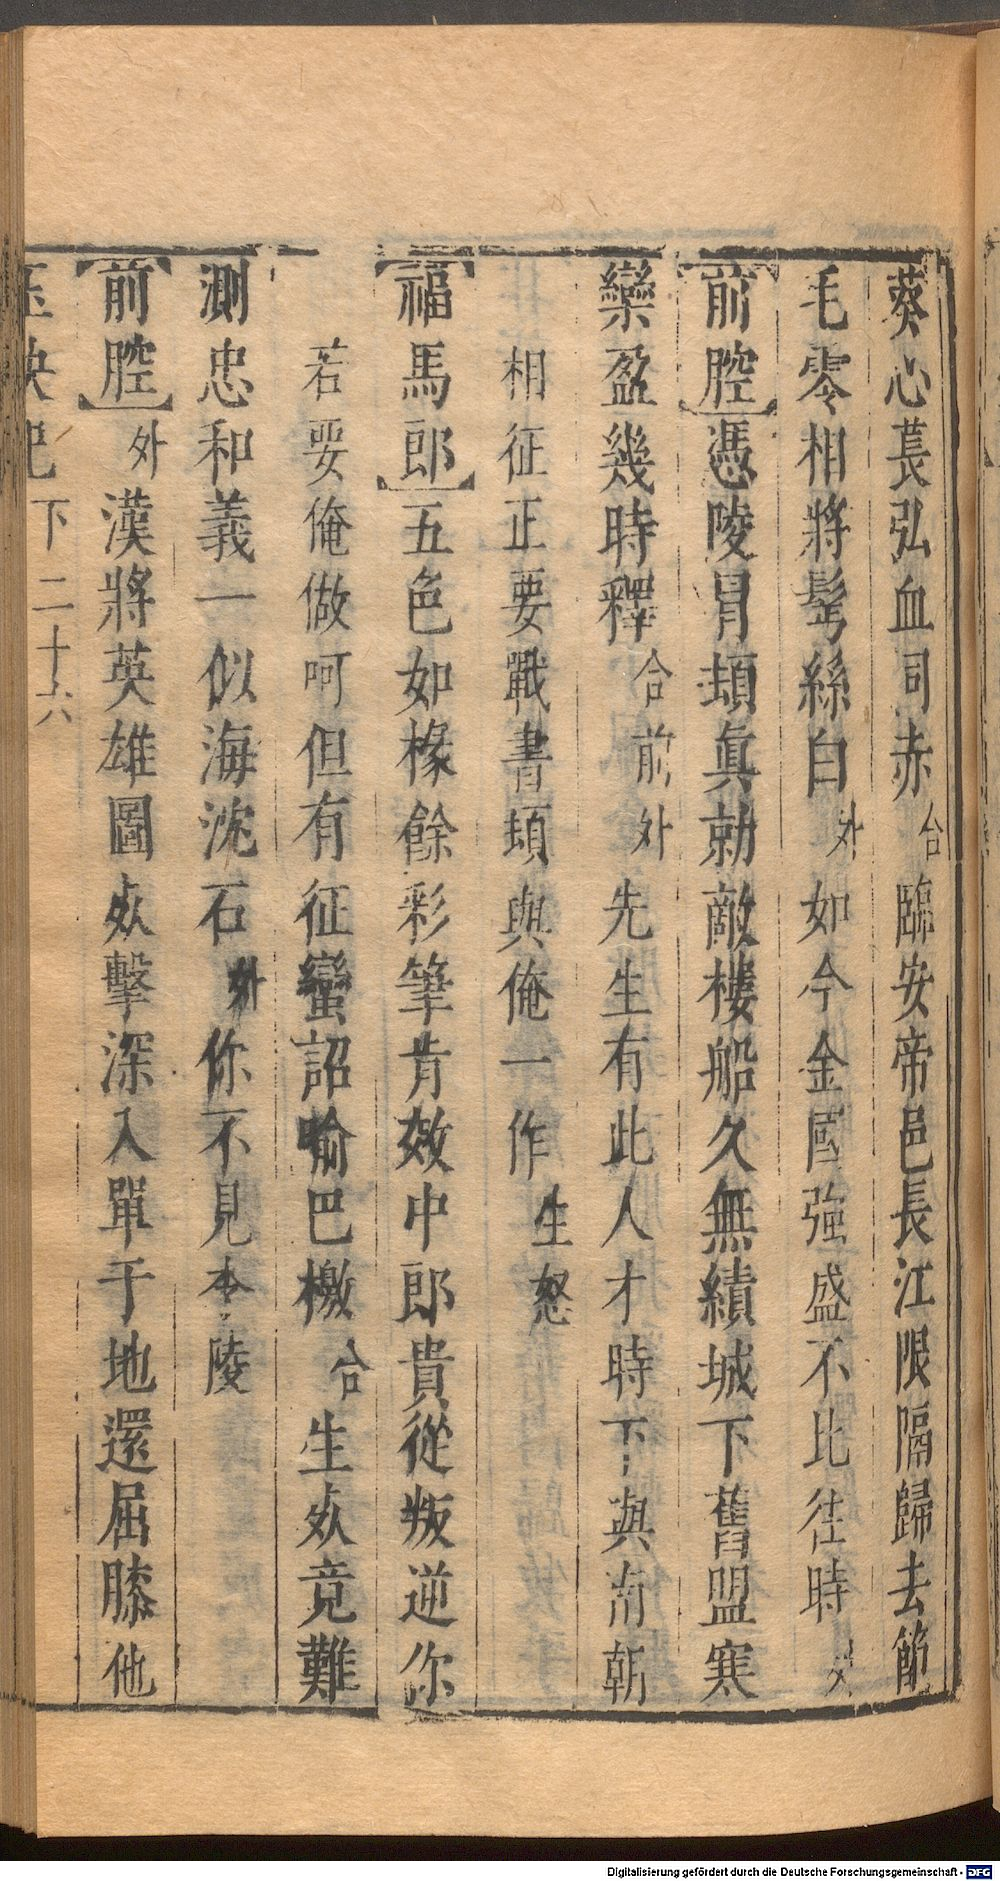 葵心萇弘血同赤合臨安帝邑長江限隔歸去節
毛零相將髩絲白外如今金國強盛不比徃時
【前腔】憑陵冐頓真勍敵樓船久無績城下舊盟寒
欒盈幾時釋合前外先生有此人才時下與南朝
相征正要戰書頓與俺一作生怒
【福馬郎】五色如椽餘彩筆肯效中郎貴從叛逆你
若要俺做呵但有征蠻詔喻巴檄合生㱠竟難
測忠和義一似海沈石外你不見李陵
【前腔】外漢將英雄圖㱠擊深入單于地還屈膝他
玉玦記 下 二十六
Digitalisierung gefördert durch die Deutsche Forschungsgemeinschaft - DFG